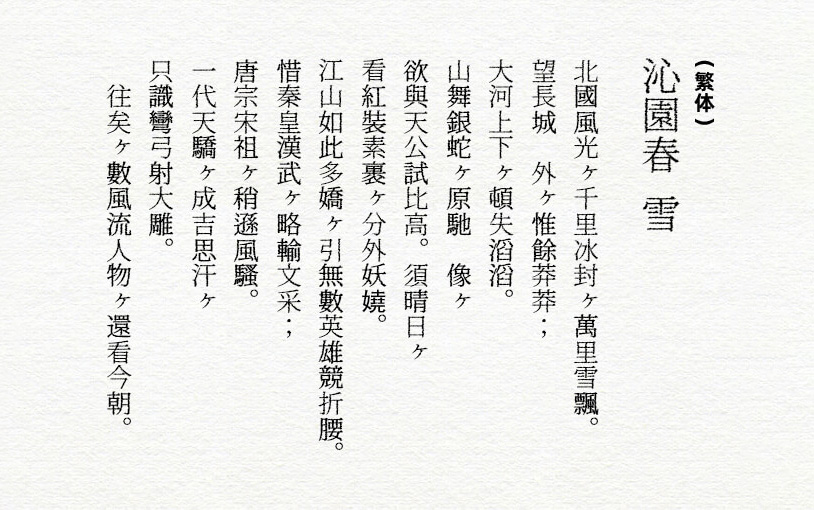 (繁体)
沁園春 雪
北國風光ヶ千里冰封ヶ萬里雪飄。
望長城 外ヶ惟餘莽莽；
大河上下ヶ頓失滔滔。
山舞銀蛇ヶ原馳 像ヶ
欲與天公試比高。須晴日ヶ
看紅裝素裹ヶ分外妖嬈。
江山如此多嬌ヶ引無數英雄競折腰。
惜秦皇漢武ヶ略輸文采；
唐宗宋祖ヶ稍遜風騷。
一代天驕ヶ成吉思汗ヶ
只識彎弓射大雕。
往矣ヶ數風流人物ヶ還看今朝。